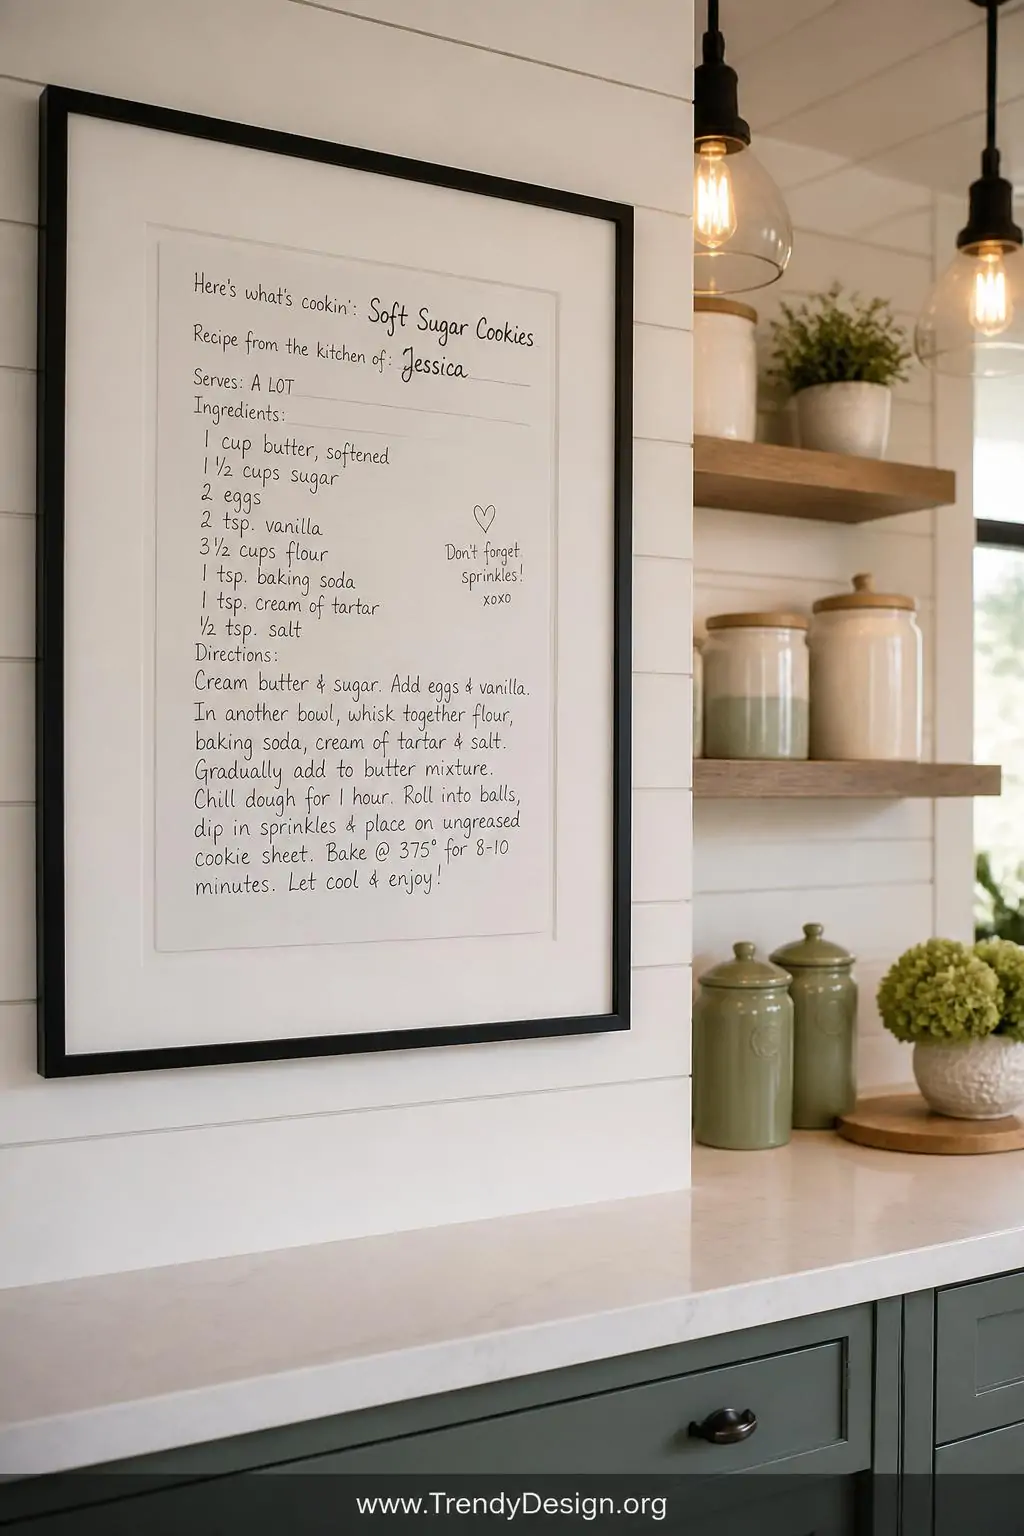 Here's what's cookin': Soft Sugar Cookies
Recipe from the kitchen of: Jessica
Serves: A LOT
Ingredients:
1 cup butter, softened
1 ½ cups sugar
2 eggs
2 tsp. vanilla
3 ½ cups flour
1 tsp. baking soda
1 tsp. cream of tartar
½ tsp. salt
Don't forget
sprinkles!
xoxo
Directions:
Cream butter & sugar. Add eggs & vanilla.
In another bowl, whisk together flour,
baking soda, cream of tartar & salt.
Gradually add to butter mixture.
Chill dough for 1 hour. Roll into balls,
dip in sprinkles & place on ungreased
cookie sheet. Bake @ 375° for 8-10
minutes. Let cool & enjoy!
www.TrendyDesign.org